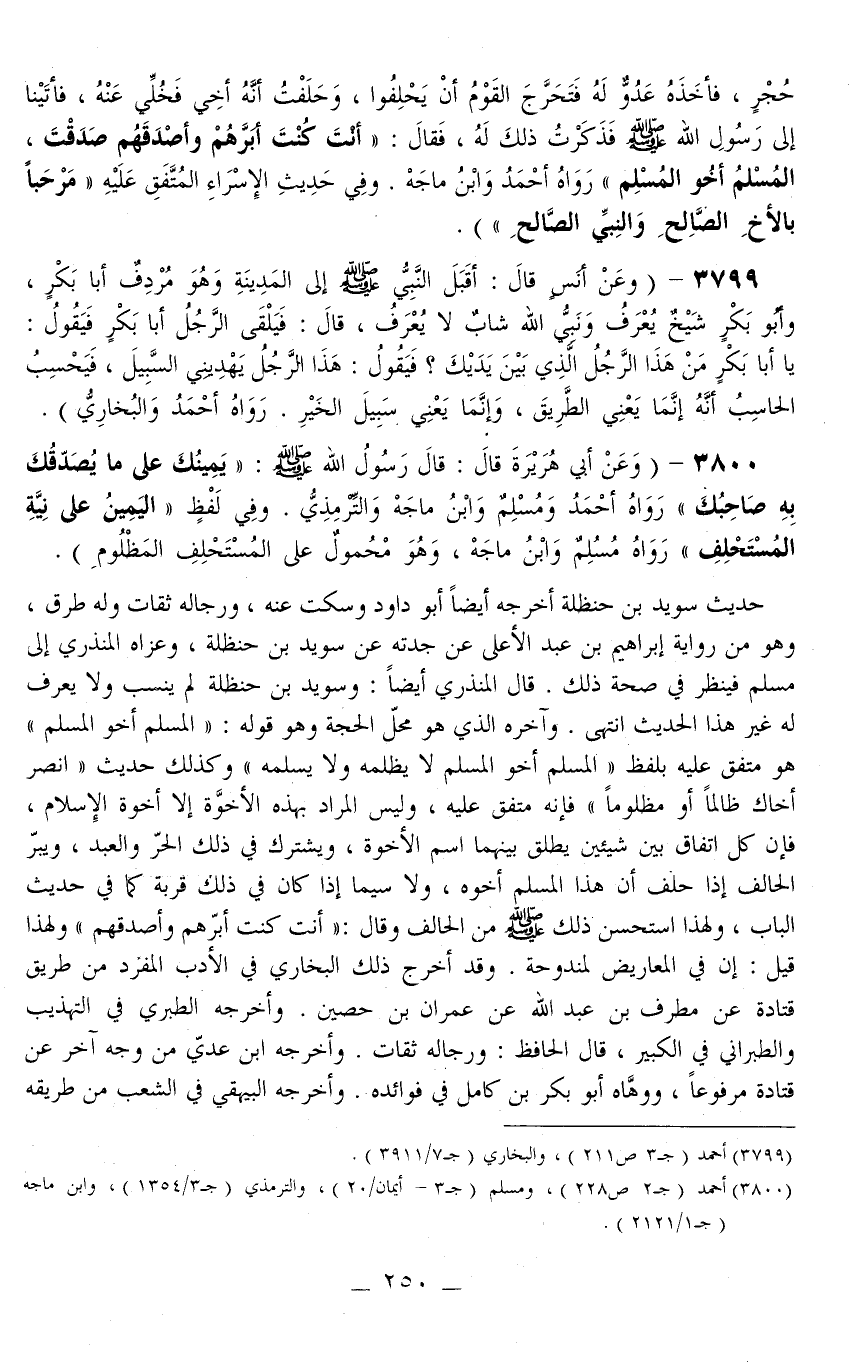 حُجْرٍ ، فأخَذَهُ عَدُوٌّ لَهُ فَتَحَرَّجَ القَوْمُ أنْ يَحْلِفُوا ، وَحَلَفْتُ أنَّهُ أخِي فَخُلِّي عَنْهُ ، فأتَيْنا
إلى رَسُولِ الله ﷺ فَذَكَرْتُ ذلكَ لَهُ ، فَقالَ : « أنْتَ كُنْتَ أبَرَّهُمْ وأصْدَقَهُم صَدَقْتَ ،
المُسْلمُ أخُو المُسْلِمِ » رَوَاهُ أحْمَدُ وَابْنُ ماجَهْ . وفِي حَدِيثِ الإِسْرَاءِ المُتَّفَقِ عَلَيْهِ « مَرْحَباً
بالأخِ الصَّالِحِ وَالنبِيِّ الصَّالحِ » ) .
٣٧٩٩ – ( وعَنْ أنَسٍ قالَ : أقبَلَ النَّبِيُّ ﷺ إلى المَدِينَةِ وَهُوَ مُرْدِفٌ أبا بَكْرٍ ،
وأبُو بَكْرٍ شَيْخٌ يُعْرَفُ وَنَبِيُّ الله شابٌ لا يُعْرَفُ ، قالَ : فَيَلْقَى الرَّجُلُ أبا بَكْرٍ فَيَقُولُ :
يا أبا بَكْرٍ مَنْ هَذَا الرَّجُلُ الَّذِي بَيْنَ يَدَيْكَ ؟ فَيَقُولُ : هَذَا الرَّجُلُ يَهْدِينِي السَّبِيلَ ، فَيَحْسِبُ
الحَاسِبُ أنَّهُ إنَّمَا يَعْنِي الطَّرِيقَ ، وَإنَّمَا يَعْنِي سَبِيلَ الخَيْرِ . رَوَاهُ أحْمَدُ وَالبُخارِيُّ ) .
٣٨٠٠ – ( وَعَنْ أبي هُرَيْرَةَ قالَ : قالَ رَسُولُ الله ﷺ : « يَمِينُكَ على ما يُصَدّقُكَ
بِهِ صَاحِبُكَ » رَوَاهُ أحْمَدُ وَمُسْلِمٌ وَابْنُ ماجَهْ وَالتِّرْمِذِيُّ . وفِي لَفْظٍ « اليَمِينُ على نِيَّةِ
المُسْتَحْلِفِ » رَوَاهُ مُسْلِمٌ وَابْنُ ماجَهْ ، وَهُوَ مْحْمولٌ على المُسْتَحْلِفِ المَظْلُومِ ) .
حديث سويد بن حنظلة أخرجه أيضاً أبو داود وسكت عنه ، ورجاله ثقات وله طرق ،
وهو من رواية إبراهيم بن عبد الأعلى عن جدته عن سويد بن حنظلة ، وعزاه المنذري إلى
مسلم فينظر في صحة ذلك . قال المنذري أيضاً : وسويد بن حنظلة لم ينسب ولا يعرف
له غير هذا الحديث انتهى . وآخره الذي هو محلّ الحجة وهو قوله : « المسلم أخو المسلم »
هو متفق عليه بلفظ « المسلم أخو المسلم لا يظلمه ولا يسلمه » وكذلك حديث « انصر
أخاك ظالماً أو مظلوماً » فإنه متفق عليه ، وليس المراد بهذه الأخوَّة إلا أخوة الإِسلام ،
فإن كل اتفاق بين شيئين يطلق بينهما اسم الأخوة ، ويشترك في ذلك الحرّ والعبد ، ويبرّ
الحالف إذا حلف أن هذا المسلم أخوه ، ولا سيما إذا كان في ذلك قربة كما في حديث
الباب ، ولهذا استحسن ذلك ﷺ من الحالف وقال :« أنت كنت أبرّهم وأصدقهم » ولهذا
قيل : إن في المعاريض لمندوحة . وقد أخرج ذلك البخاري في الأدب المفرد من طريق
قتادة عن مطرف بن عبد الله عن عمران بن حصين . وأخرجه الطبري في التهذيب
والطبراني في الكبير ، قال الحافظ : ورجاله ثقات . وأخرجه ابن عديّ من وجه آخر عن
قتادة مرفوعاً ، ووهَّاه أبو بكر بن كامل في فوائده . وأخرجه البيهقي في الشعب من طريقه
(٣٧٩٩) أحمد ( جـ٣ ص٢١١ ) ، والبخاري ( جـ٣٩١١/٧ ) .
(٣٨٠٠) أحمد ( جـ٢ ص٢٢٨ ) ، ومسلم ( جـ٣ – أيمان/٢٠ ) ، والترمذي ( جـ١٣٥٤/٣ ) ، وابن ماجه
( جـ٢١٢١/١ ) .
_ ٢٥٠ _